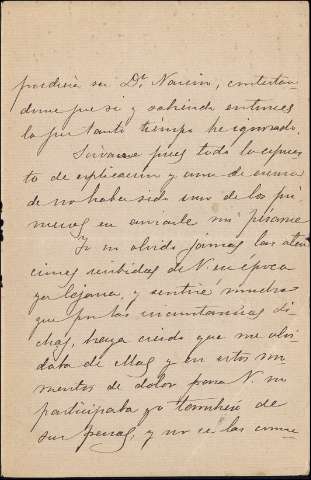 pudiera ser Dr. Narciso, contestan-
dome que si y sabiendo entonces
lo que tanto tiempo he ignorado.
Sirva pues todo lo expues-
to de explicacion y como de excusa
de no haber sido uno de los pri-
meros en enviarle mi pésame
Yo no olvido jamas las aten-
ciones recibidas de V. en época
ya lejana, y sentiré muchas
que por las circunstancias di-
chas, haya creido que me olvi-
daba de ellas y en estos mo-
mentos de dolor para V. no
participaba yo tambien de
sus penas, y no se las comu-